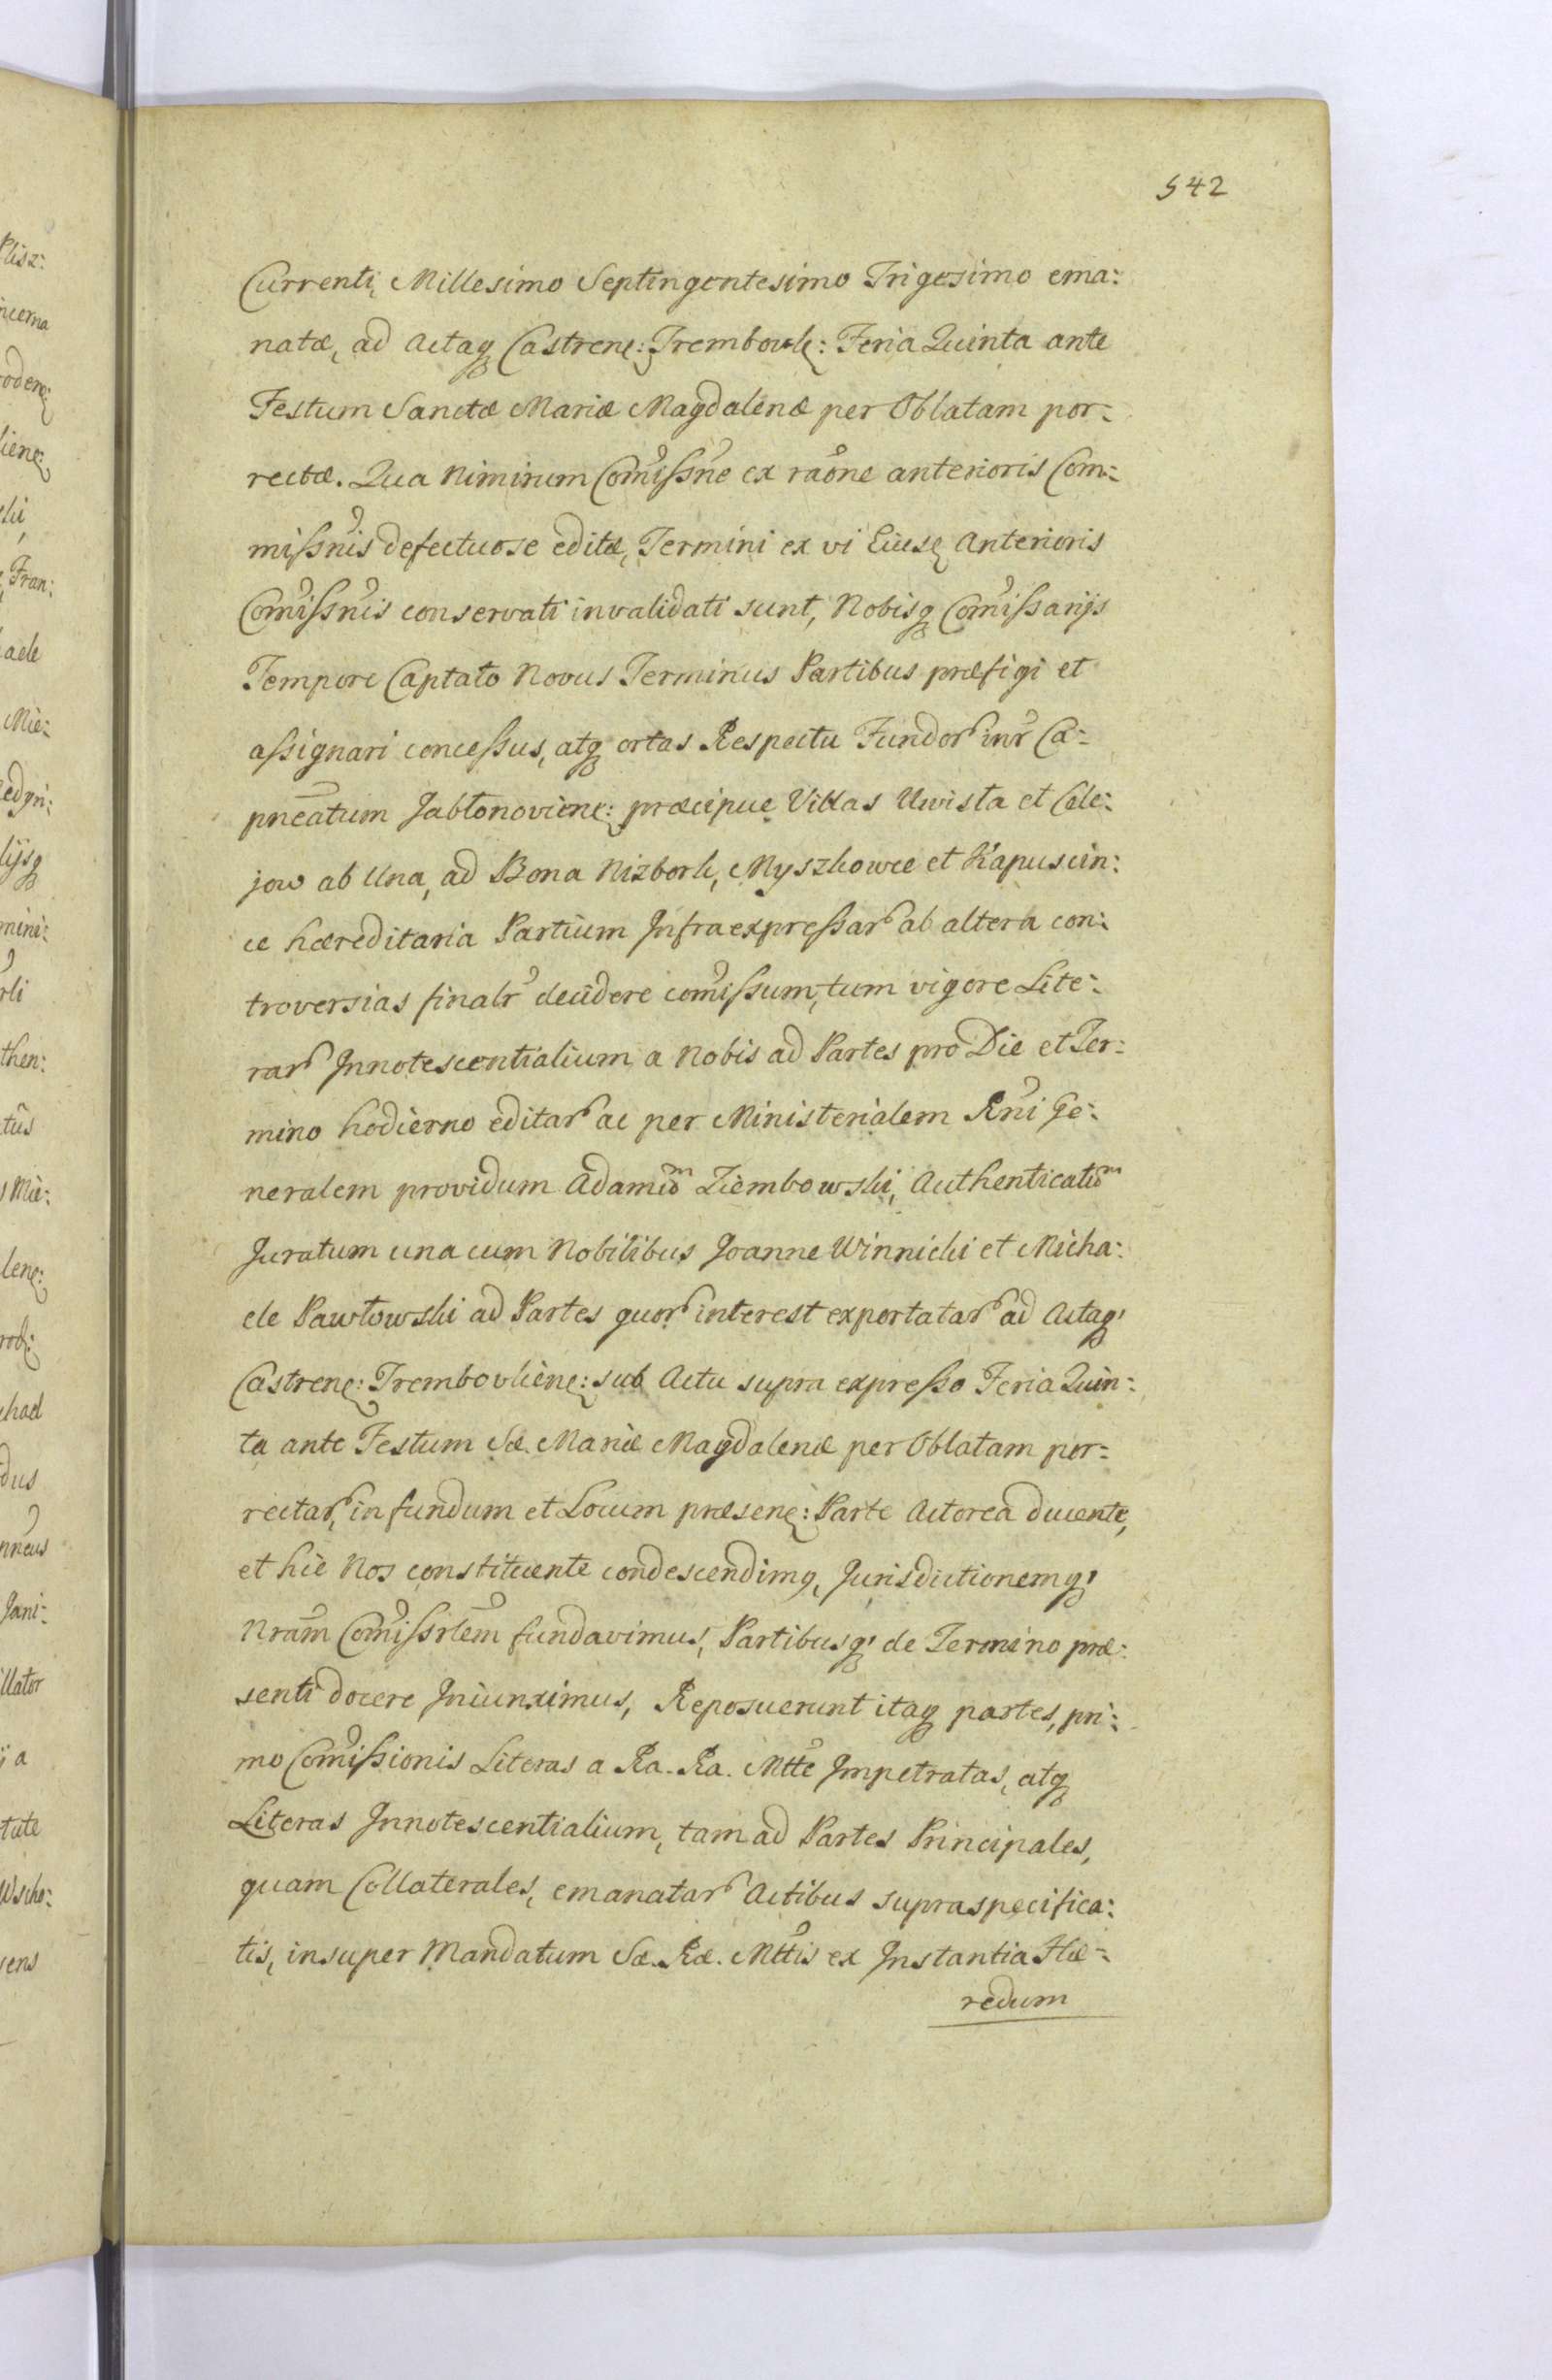 542
Currenti, Millesimo Septingentesimo Trigesimo ema:
natæ, ad Actaq Castrenę: Trembovlę: Feria Quinta ante
Festum Sanctæ Mariæ Magdalenæ per Oblatam por:
rectæ. Qua Nimirum Comissne ex raone anterioris Com:
missnis defectuose editæ, Termini ex vi Eiusę Anterioris
Comissnis conservati invalidati sunt, Nobisq Comissarijs
Tempore Captato Novus Terminus Partibus præfigi et
assignari concessus, atq ortas Respectu Fundor inr Ca:
pneatum Jabłonovienę: præcipue Villas Uwisła et Cele:
jow ab Una, ad Bona Nizbork, Myszkowce et Kapuscin:
ce hæreditaria Partium Infraexpressar ab altera con:
troversias finalr decidere comissum, tum vigore Lite:
rar Innotescentialium a Nobis ad Partes pro Die et Ter:
mino hodierno editar ac per Ministerialem Rni Ge:
neralem providum Adamum Ziembowski, Authenticatum
Juratum una cum Nobilibus Joanne Winnicki et Micha:
ele Pawłowski ad Partes quor interest exportatar ad Actaq
Castrenę: Trembovlienę: sub Actu supra expresso Feria Quin:
ta ante Festum Sæ. Mariæ Magdalenæ per Oblatam por:
rectar, in fundum et Locum præsenę: Parte Actorea ducente,
et hic Nos constituente condescendimq, Jurisdictionemq
Nram Comissrlem fundavimus, Partibusq de Termino præ:
senti docere Iniunximus, Reposuerunt itaq partes, pri:
mo Comissionis Literas a Ra. Ra. Mtte Impetratas, atq
Literas Innotescentialium, tam ad Partes Principales,
quam Collaterales, emanatar Actibus supraspecifica:
tis, insuper Mandatum Sæ. Ræ. Mttis ex Instantia Hæ:
redum